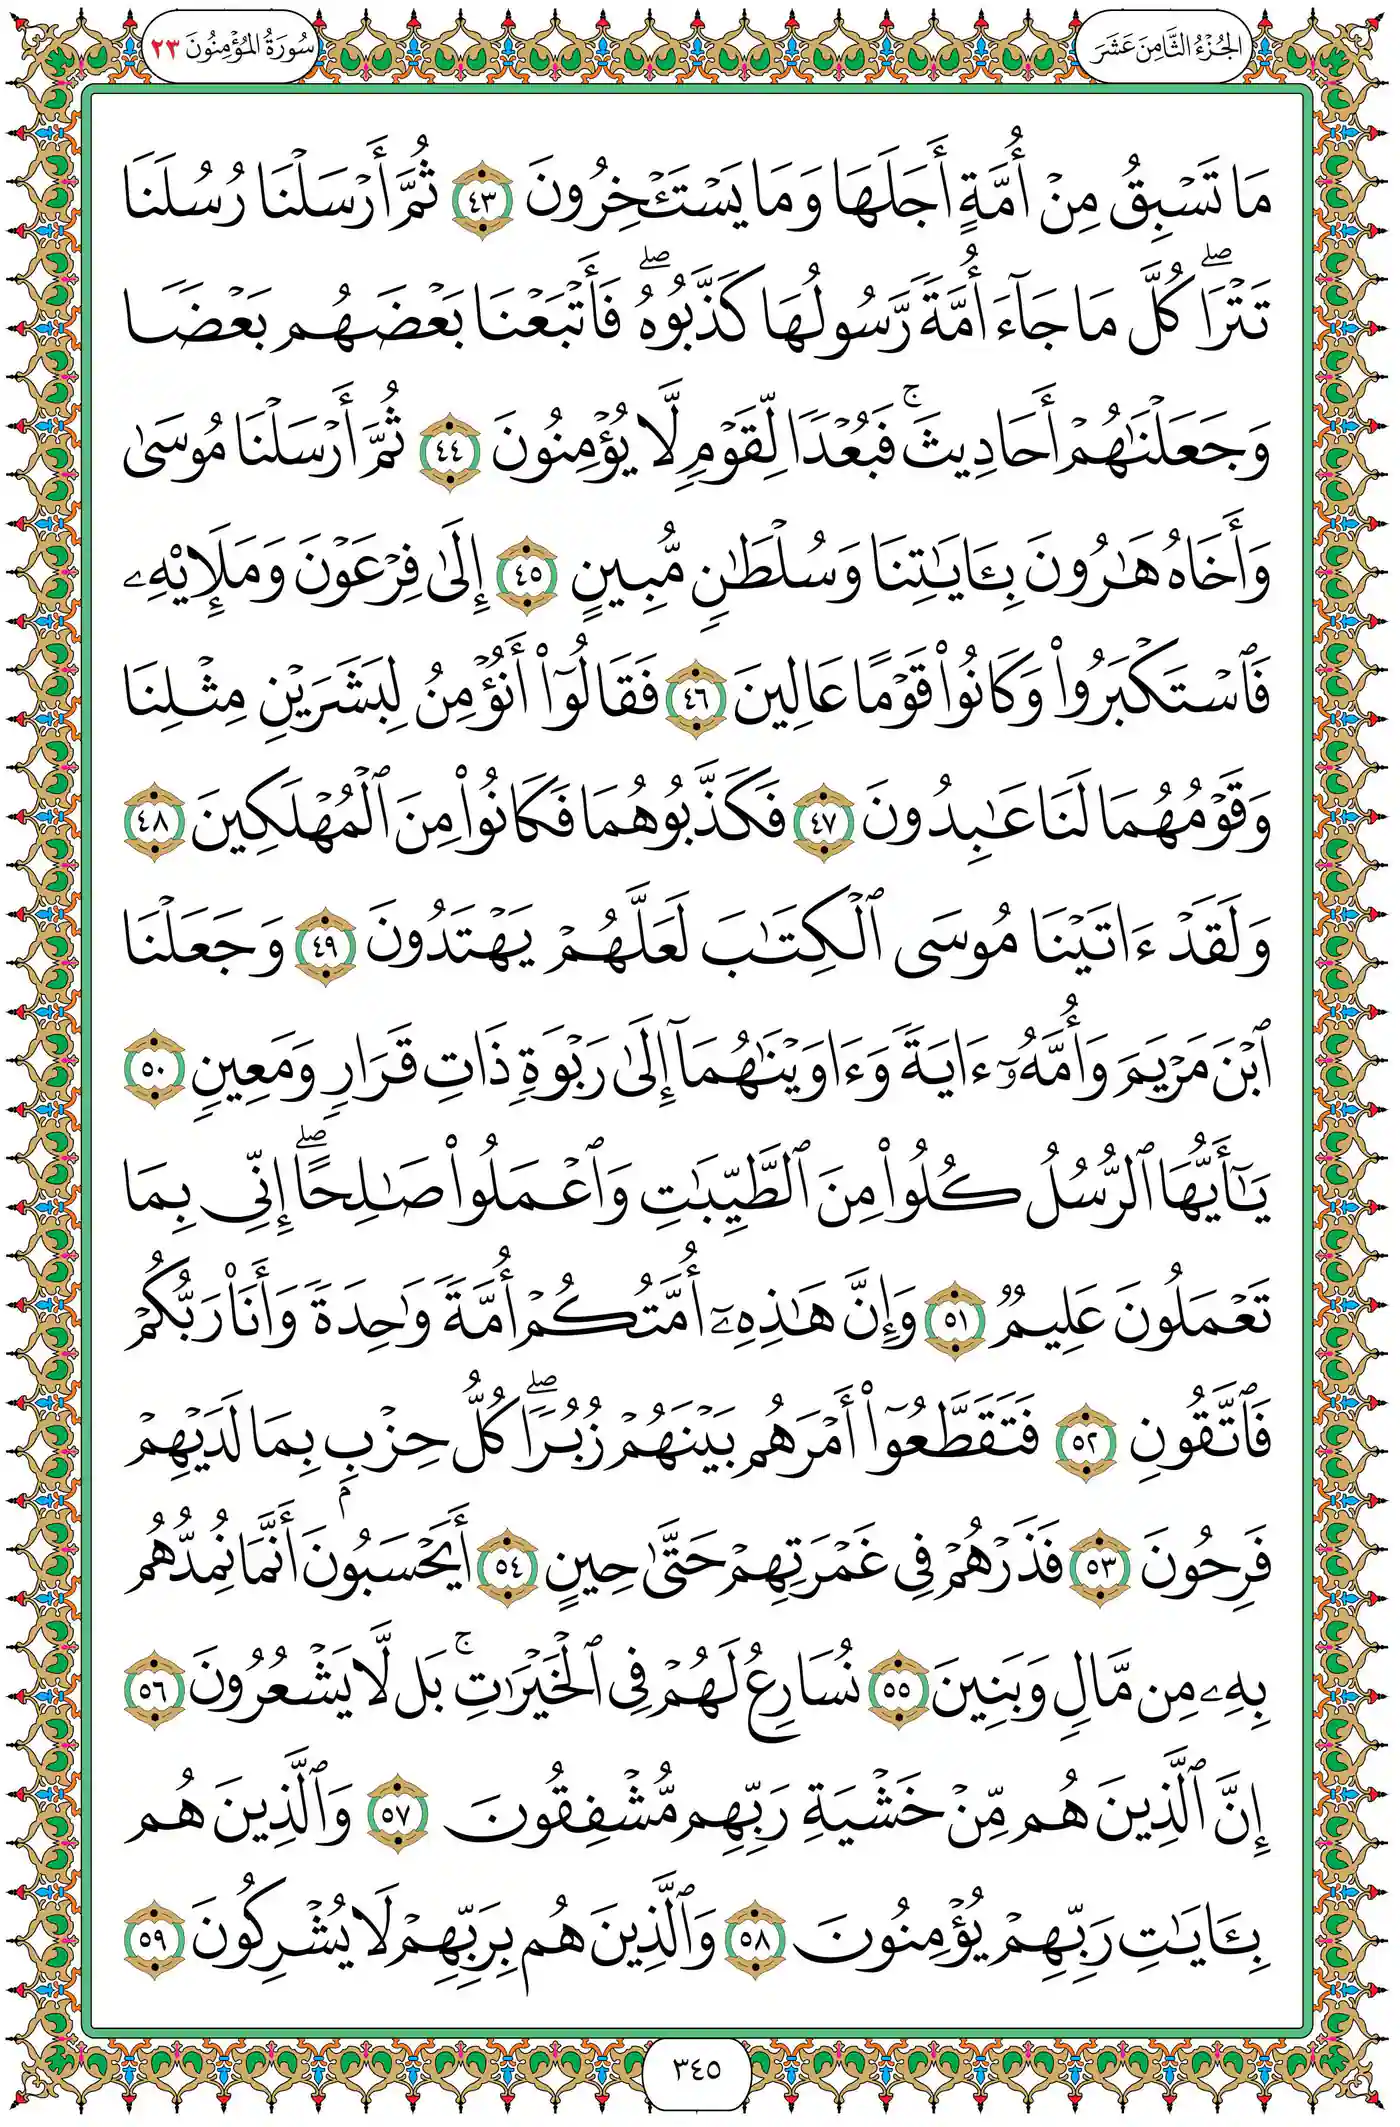 الجُزْءُ الثَّامِنَ عَشَرَ
سُورَةُ المُؤْمِنُونَ ٢٣
مَا تَسْبِقُ مِنْ أُمَّةٍ أَجَلَهَا وَمَا يَسْتَـْٔخِرُونَ ٤٣ ثُمَّ أَرْسَلْنَا رُسُلَنَا
تَتْرَاۖ كُلَّ مَا جَآءَ أُمَّةً رَّسُولُهَا كَذَّبُوهُۖ فَأَتْبَعْنَا بَعْضَهُم بَعْضًا
وَجَعَلْنَٰهُمْ أَحَادِيثَۚ فَبُعْدًا لِّقَوْمٍ لَّا يُؤْمِنُونَ ٤٤ ثُمَّ أَرْسَلْنَا مُوسَىٰ
وَأَخَاهُ هَٰرُونَ بِـَٔايَٰتِنَا وَسُلْطَٰنٍ مُّبِينٍ ٤٥ إِلَىٰ فِرْعَوْنَ وَمَلَإِي۟هِۦ
فَٱسْتَكْبَرُوا۟ وَكَانُوا۟ قَوْمًا عَالِينَ ٤٦ فَقَالُوٓا۟ أَنُؤْمِنُ لِبَشَرَيْنِ مِثْلِنَا
وَقَوْمُهُمَا لَنَا عَٰبِدُونَ ٤٧ فَكَذَّبُوهُمَا فَكَانُوا۟ مِنَ ٱلْمُهْلَكِينَ ٤٨
وَلَقَدْ ءَاتَيْنَا مُوسَى ٱلْكِتَٰبَ لَعَلَّهُمْ يَهْتَدُونَ ٤٩ وَجَعَلْنَا
ٱبْنَ مَرْيَمَ وَأُمَّهُۥٓ ءَايَةً وَءَاوَيْنَٰهُمَآ إِلَىٰ رَبْوَةٍ ذَاتِ قَرَارٍ وَمَعِينٍ ٥٠
يَٰٓأَيُّهَا ٱلرُّسُلُ كُلُوا۟ مِنَ ٱلطَّيِّبَٰتِ وَٱعْمَلُوا۟ صَٰلِحًاۖ إِنِّى بِمَا
تَعْمَلُونَ عَلِيمٌ ٥١ وَإِنَّ هَٰذِهِۦٓ أُمَّتُكُمْ أُمَّةً وَٰحِدَةً وَأَنَا۠ رَبُّكُمْ
فَٱتَّقُونِ ٥٢ فَتَقَطَّعُوٓا۟ أَمْرَهُم بَيْنَهُمْ زُبُرًاۖ كُلُّ حِزْبٍۭ بِمَا لَدَيْهِمْ
فَرِحُونَ ٥٣ فَذَرْهُمْ فِى غَمْرَتِهِمْ حَتَّىٰ حِينٍ ٥٤ أَيَحْسَبُونَ أَنَّمَا نُمِدُّهُم
بِهِۦ مِن مَّالٍ وَبَنِينَ ٥٥ نُسَارِعُ لَهُمْ فِى ٱلْخَيْرَٰتِۚ بَل لَّا يَشْعُرُونَ ٥٦
إِنَّ ٱلَّذِينَ هُم مِّنْ خَشْيَةِ رَبِّهِم مُّشْفِقُونَ ٥٧ وَٱلَّذِينَ هُم
بِـَٔايَٰتِ رَبِّهِمْ يُؤْمِنُونَ ٥٨ وَٱلَّذِينَ هُم بِرَبِّهِمْ لَا يُشْرِكُونَ ٥٩
٣٤٥